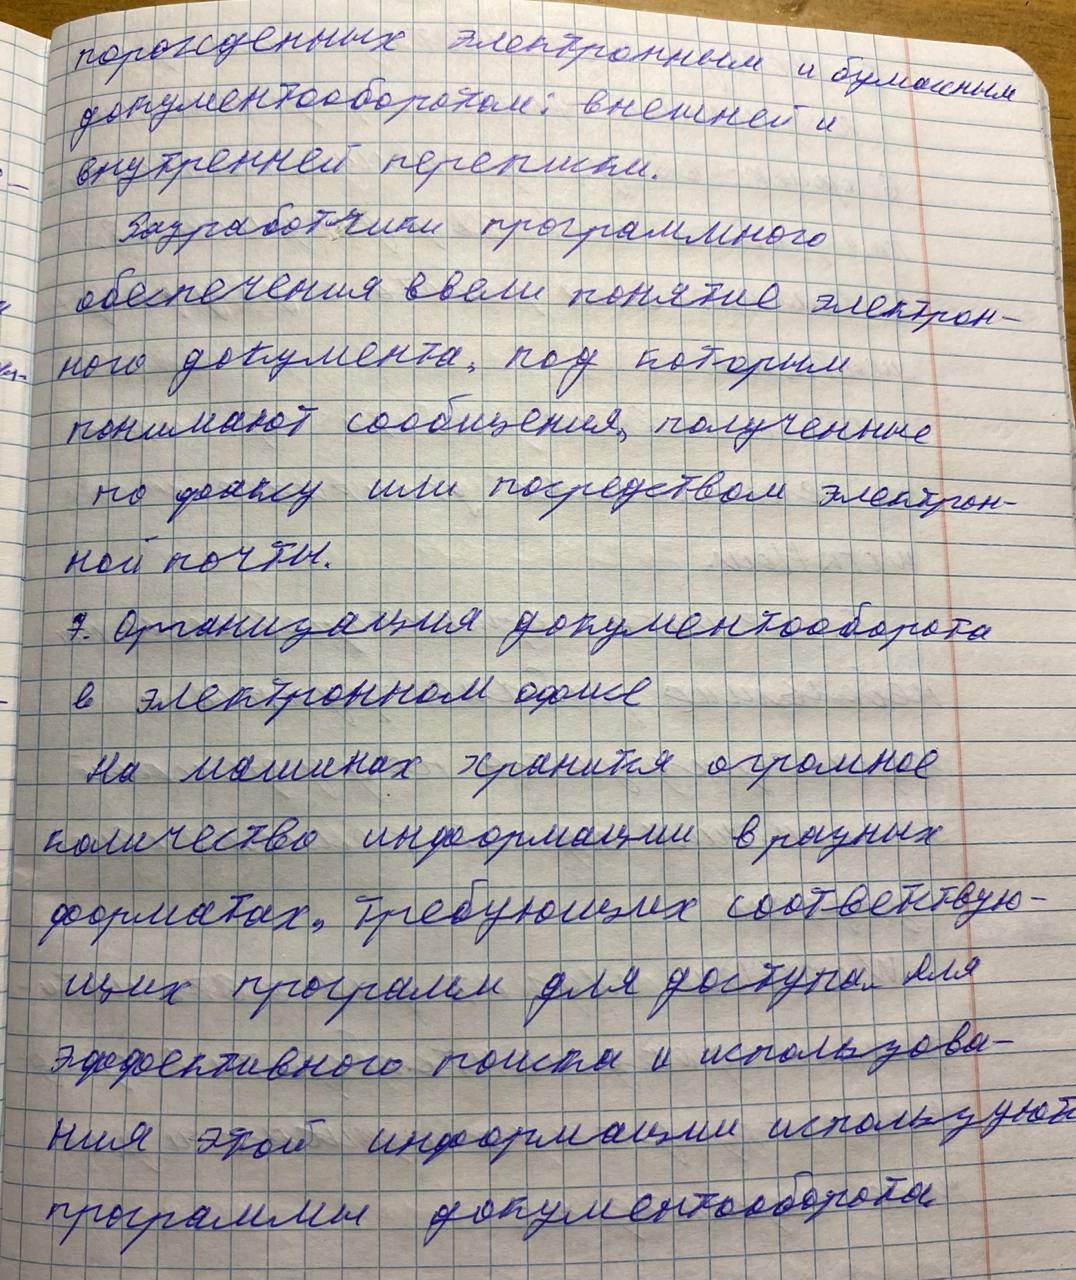 порожденных электронным и бумажным
документооборотом: внешней и
внутренней переписки.
Разработчики программного
обеспечения ввели понятие электрон-
ного документа, под которым
понимают сообщения, полученные
по факсу или посредством электрон-
ной почты.
7. Организация документооборота
в электронном офисе
На машинах хранится огромное
количество информации в разных
форматах, требующих соответствую-
щих программ для доступа. Для
эффективного поиска и использова-
ния этой информации используют
программы документооборота